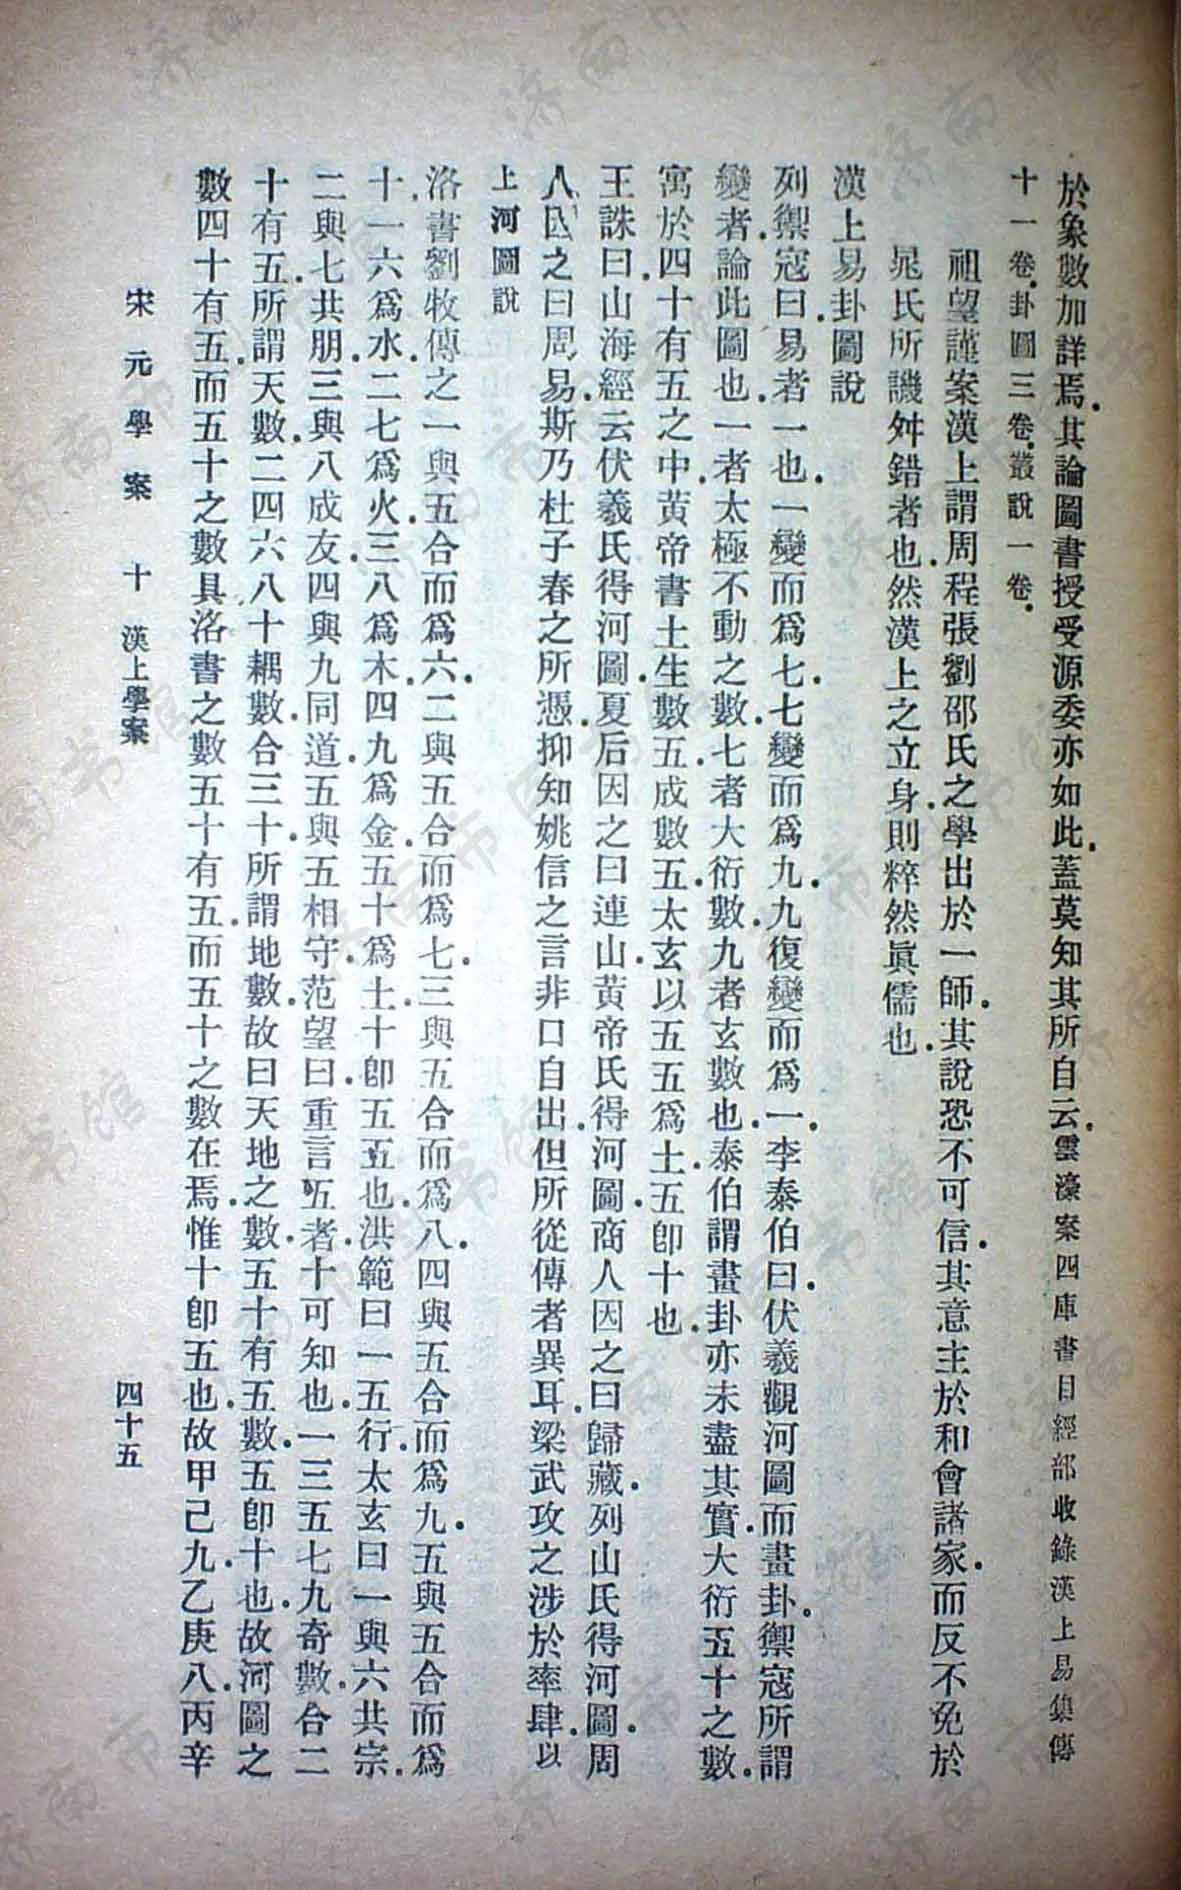 於象數加詳焉.其論圖書授受源委亦如此.蓋莫知其所自云.雲濠案四庫書目經部收錄漢上易集傳
十一卷.卦圖三卷.叢說一卷.
祖望謹案漢上謂周程張劉邵氏之學出於一師.其說恐不可信.其意主於和會諸家.而反不免於
晁氏所譏舛錯者也.然漢上之立身.則粹然眞儒也.
漢上易卦圖說
列禦寇曰.易者一也.一變而爲七.七變而爲九.九復變而爲一.李泰伯曰.伏羲觀河圖而畫卦。禦寇所謂
變者.論此圖也.一者太極不動之數.七者大衍數.九者玄數也.泰伯謂畫卦亦未盡其實.大衍五十之數.
寓於四十有五之中.黃帝書土生數五.成數五.太玄以五五爲土.五卽十也.
王誅曰.山海經云伏羲氏得河圖.夏后因之曰連山.黃帝氏得河圖.商人因之曰歸藏.列山氏得河圖.周
人因之曰周易.斯乃杜子春之所憑.抑知姚信之言非口自出.但所從傳者異耳.梁武攻之涉於率肆.以
上河圖說
洛書劉牧傳之一與五合而爲六.二與五合而爲七.三與五合而爲八.四與五合而爲九.五與五合而爲
十.一六爲水.二七爲火.三八爲木.四九爲金.五十爲土.十卽五五也.洪範曰一五行.太玄曰一與六共宗.
二與七共朋.三與八成友.四與九同道.五與五相守.范望曰.重言五者.十可知也.一三五七九奇數.合二
十有五.所謂天數.二四六八十耦數.合三十.所謂地數.故曰天地之數.五十有五.數.五卽十也.故河圖之
數四十有五.而五十之數具.洛書之數五十有五.而五十之數在焉.惟十卽五也.故甲己九.乙庚八.丙辛
宋元學案　十　漢上學案　四十五